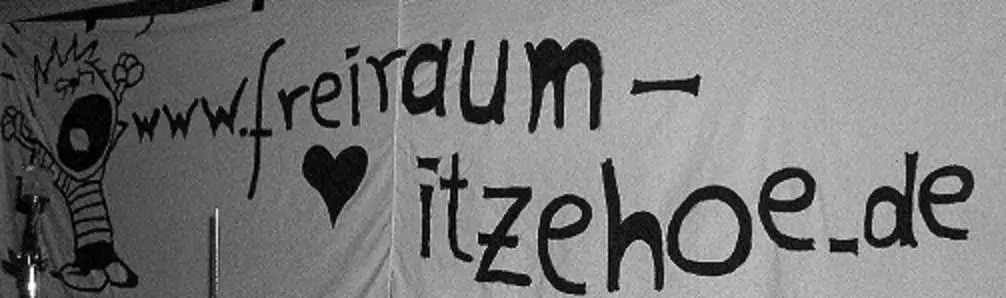 www.freiraum-
itzehoe.de